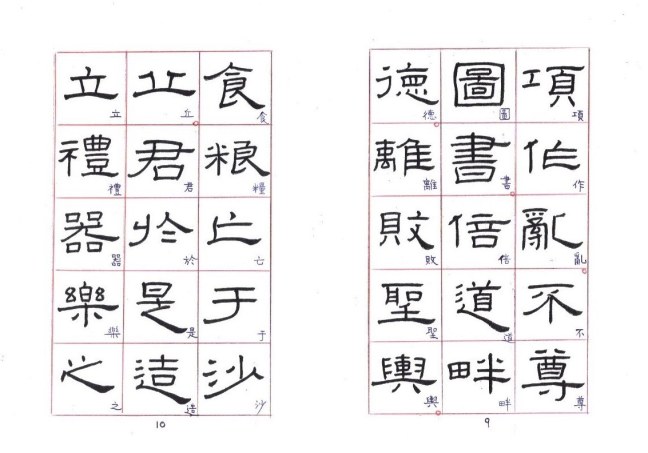 項作亂不尊
項作亂不尊
圖書倍道畔
圖書倍道畔
德離敗聖輿
德離敗聖輿
9
食粮亡于沙
食糧亡于沙
丘君於是造
丘君於是造
立禮器樂之
立禮器樂之
10